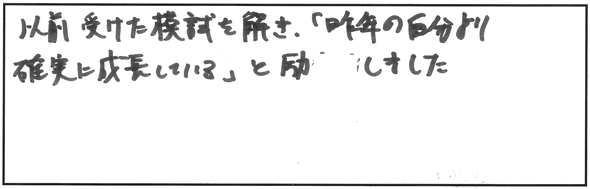 以前受けた模試を解き、「昨年の自分より
確実に成長している」と励 しました